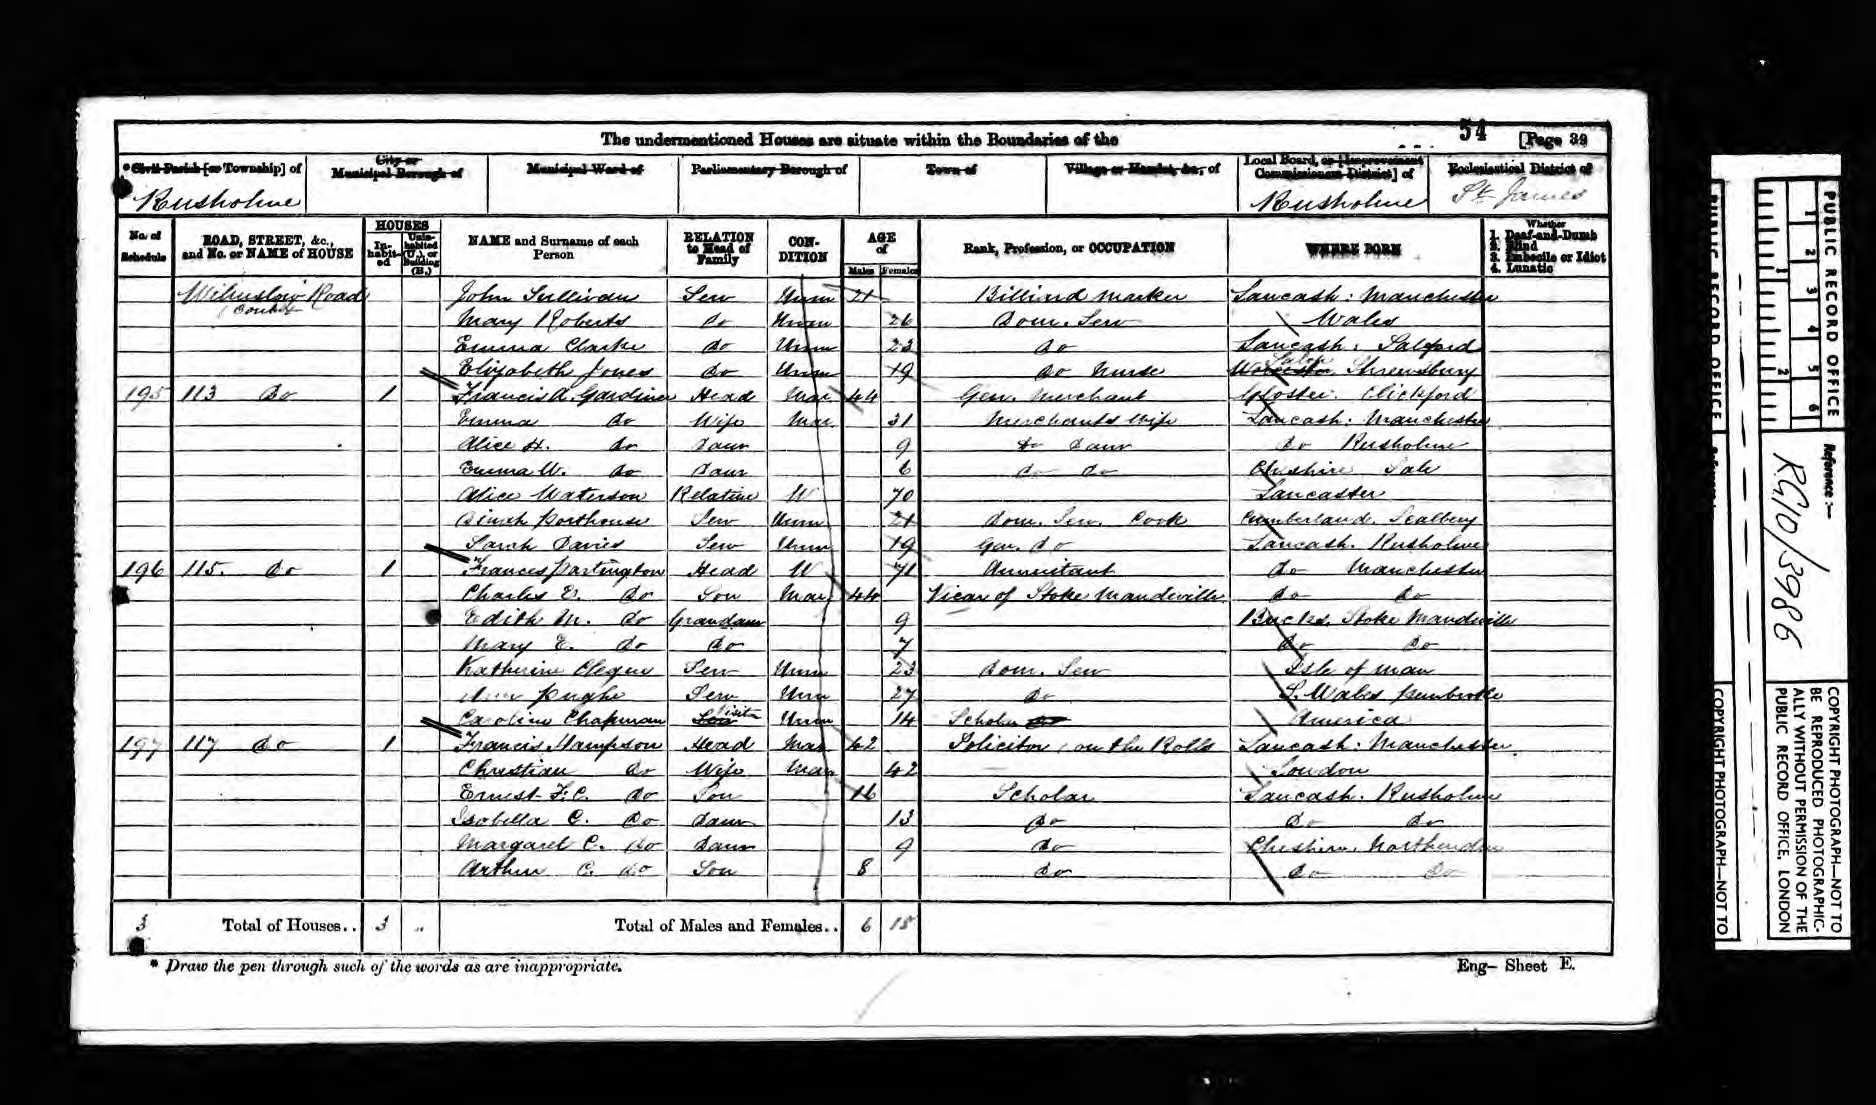 The undermentioned Houses are situate within the Boundaries of the
54
[Page 39
* Civil Parish [or Township] of
City or Municipal Borough of
Municipal Ward of
Parliamentary Borough of
Town of
Village or Hamlet, &c., of
Local Board, or [Improvement Commissioners District] of
Ecclesiastical District of
Rusholme
Rusholme
St. James
No. of Schedule
ROAD, STREET, &c., and No. or NAME of HOUSE
HOUSES
In-habit-ed
Unin-habited (U.), or Building (B.)
NAME and Surname of each Person
RELATION to Head of Family
CON-DITION
AGE of
Males
Females
Rank, Profession, or OCCUPATION
WHERE BORN
Whether
1. Deaf-and-Dumb
2. Blind
3. Imbecile or Idiot
4. Lunatic
Wilmslow Road John Sullivan Serv Unm 21 Billiard Marker Lancash: Manchester
Mary Roberts Do Unm 26 Dom. Serv Wales
Emma Clarke Do Unm 23 Do Lancash: Salford
Elizabeth Jones Do Unm 19 Do Nurse Worcester Salop Shrewsbury
195 113 Do 1 Francis A. Gardiner Head Mar 44 Gen. Merchant Gloster:
Emma Do Wife Mar 31 Merchants Wife Lancash: Manchester
Alice H. Do Daur 9 Do Daur Do Rusholme
Emma W. Do Daur 6 Do Do Cheshire Sale
Alice Waterson Relative W 70 Lancaster
Dinah Porthouse Serv Unm 21 Dom. Serv. Cook Cumberland.
Sarah Davies Serv Unm 19 Gen. Do Lancash. Rusholme
196 115. Do 1 Frances Partington Head W 71 Annuitant Do Manchester
Charles E. Do Son Mar 44 Vicar of Stoke Mandeville Do Do
Edith M. Do Grandaur 9 Bucks. Stoke Mandeville
Mary E. Do Do 7 Do Do
Katherine Clegue Serv Unm 23 Dom. Serv Isle of Man
Ann Pughe Serv Unm 27 Do S. Wales Pembroke
Caroline Chapman Serv Visitor Unm 14 Scholar Do America
197 117 Do 1 Francis Hampson Head Mar 42 Solicitor (on the Rolls Lancash: Manchester
Christian Do Wife Mar 42 London
Ernest F. C. Do Son 16 Scholar Lancash. Rusholme
Isabella C. Do Daur 13 Do Do Do
Margaret C. Do Daur 9 Do Cheshire. Northenden
Arthur C. Do Son 8 Do Do Do
3 Total of Houses.. 3 Total of Males and Females.. 6 18
* Draw the pen through such of the words as are inappropriate.
Eng- Sheet E.
PUBLIC RECORD OFFICE
1 2 3 4 5 6
1 2
Reference :-
RG10/3986
COPYRIGHT PHOTOGRAPH—NOT TO
BE REPRODUCED PHOTOGRAPHIC-
ALLY WITHOUT PERMISSION OF THE
PUBLIC RECORD OFFICE, LONDON
PUBLIC RECORD OFFICE
COPYRIGHT PHOTOGRAPH—NOT TO